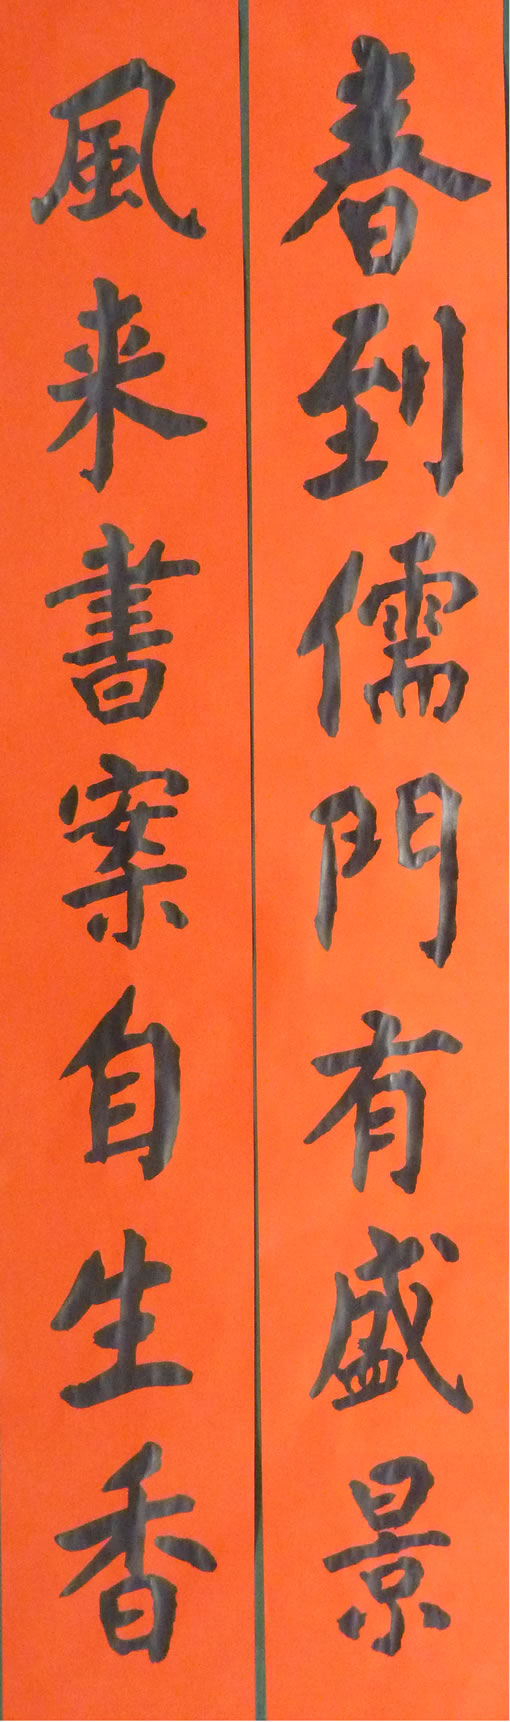 春到儒門有盛景
風来書案自生香